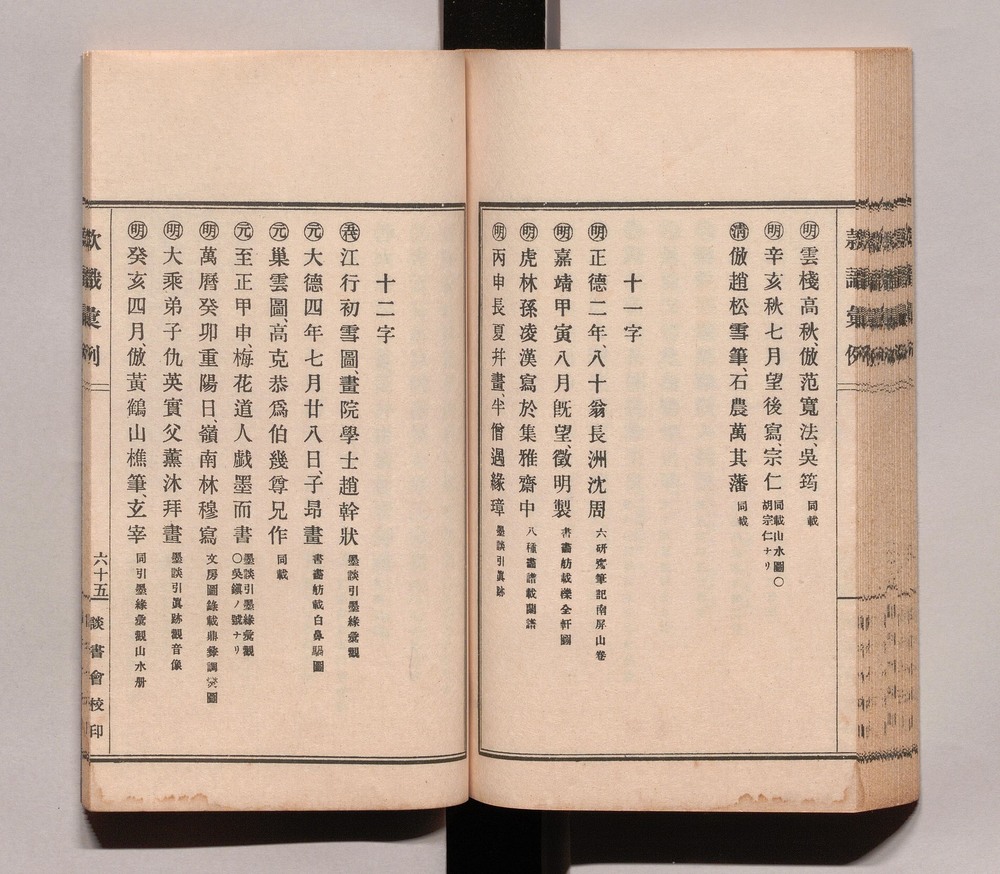 ㊔明 雲棧高秋、倣范寬法、吳筠 同載
明 辛亥秋七月望後寫、宗仁 同載山水圖〇胡宗仁ナリ
淸 倣趙松雪筆、石農萬其藩 同載
十一字
明 正德二年、八十翁長洲沈周 六硏齋筆記南屏山卷
明 嘉靖甲寅八月旣望、徵明製 書畫舫載櫟全軒圖
明 虎林孫凌漢寫於集雅齋中 八種畫譜載蘭譜
明 丙申長夏幷畫、半僧遇緣璋 墨談引眞跡
十二字
江行初雪圖、畫院學士趙幹狀 墨談引墨緣彙觀
元 大德四年七月廿八日、子昂畫 書畫舫載白鼻騧圖
元 巢雲圖、高克恭爲伯幾尊兄作 同載
元 至正甲申、梅花道人戱墨而書 墨談引墨緣彙觀〇吳鎭ノ號ナリ
明 萬曆癸卯重陽日、嶺南林穆寫 文房圖錄載鼎彝調爕圖
明 大乘弟子仇英實父薰沐拜畫 墨談引眞跡觀音像
明 癸亥四月倣黃鶴山樵筆、玄宰 同引墨緣彙觀山水册
款識彙例
六十五
談書會校印